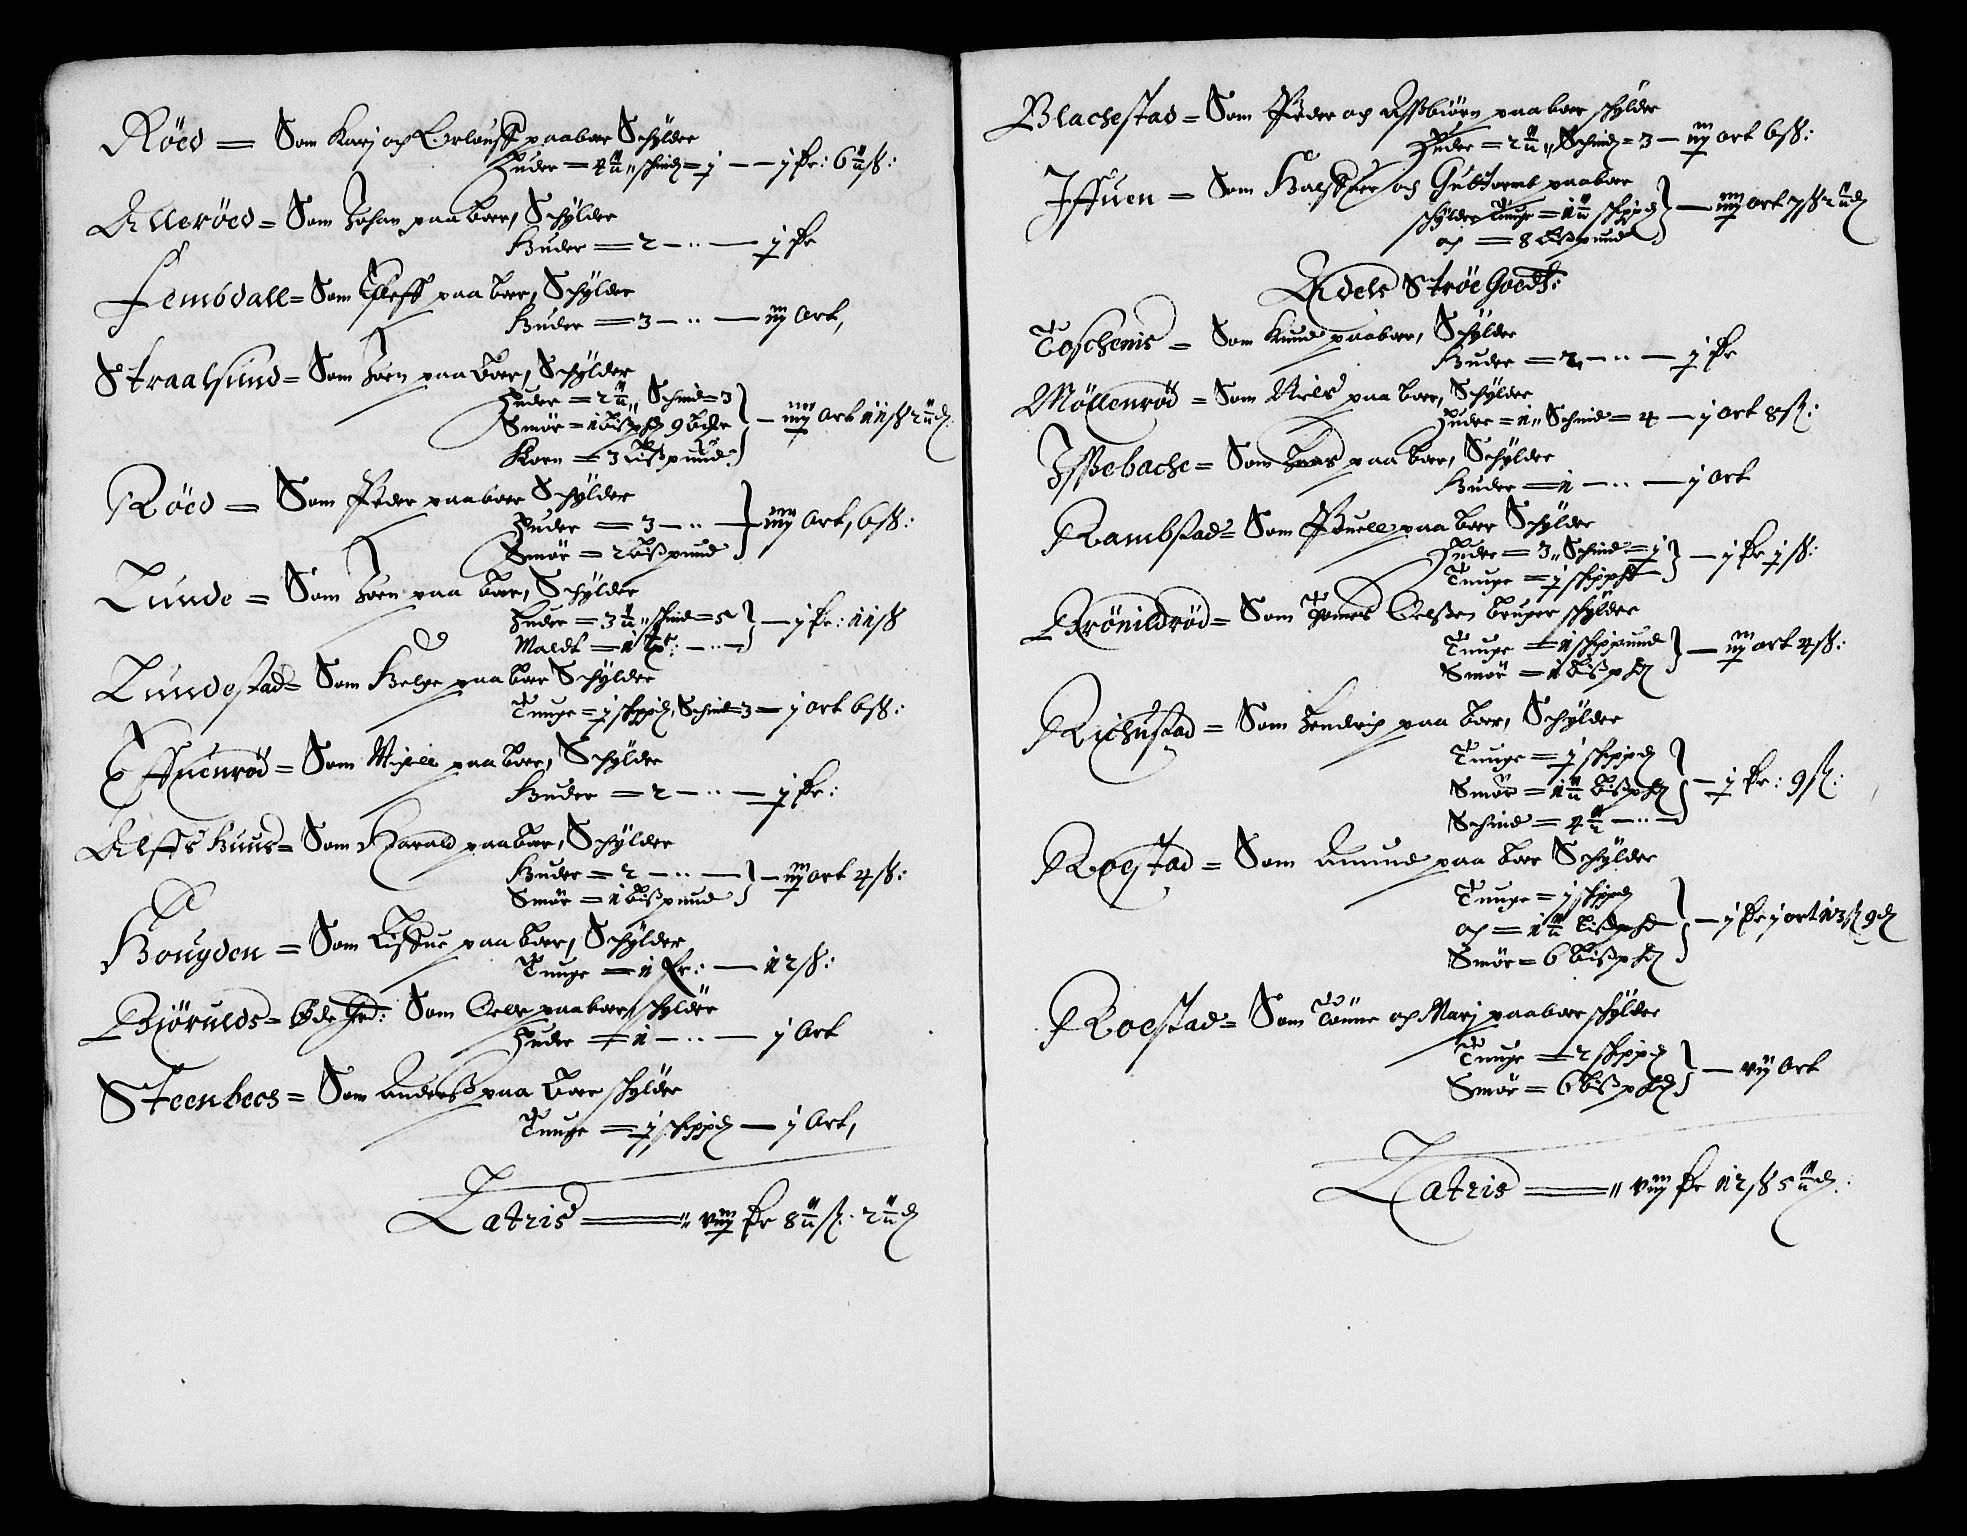 Röed = Som Karj och Erlauff paaboer Schÿlder
Huder = 4 schind = j — j Dr: 6 ß:
Alleröed = Som Johan paa boer, Schÿlder
Huder = 2 — j Dr
Fembdall = Som Oleff paa boer, Schÿlder
Huder = 3 — iij Ort,
Straalsund = Som Joen paa boer, Schÿlder
Huder = 2 Schind = 3
Smör = 1 Bißpd 9
Korn = 3 Lißpund
— iiij Ort 11 ß 2 d
Röed = Som Peder paaboer Schÿlder
Huder = 3 —
Smör = 2 Bißpund
— iiij Ort, 6 ß:
Lunde = Som Joen paa boer, Schÿlder
Huder = 3 schind = 5
Maldt = 1
— j Dr: 11 ß
Lundestad = Som Helge paa boer Schÿlder
Tunge = j schippd, Schind = 3 — j ort 6 ß:
Effuenröd = Som Michell paa boer, Schÿlder
Huder = 2 — j Dr:
Alffs Huus = Som Harald paa boer, Schÿlder
Huder = 2 —
Smör = 1 Bißpund
— iiij ort 4 ß:
Hougden = Som Liffue paa boer, Schÿlder
Tunge = 1 Fr: — 12 ß:
Biörulds = Öde Grd: Som Oele paaboer, schylder
Huder = 1 — j Ort
Steenbeck = Som Anderß paa boer schÿlder
Tunge = j schippd — j Ort,
Latris = viij Dr 8 ß: 2 d
Blachestad = Som Peder och Aßbiörn paaboer schylder
Huder = 2 Schind = 3 — iij ort 6 ß:
Iffuen = Som Halffuer och Gudtormb paaboer
schÿlder Tunge = 1 schippd
och = 8 Lißpund
— iiij ort 7 ß 2 d
Adels Ströe Goedtz:
Toschenis = Som Knud paaboer, Schÿlder
Huder = 2 — j Dr
Möllenröd = Som Niels paa boer, Schÿlder
Huder = 1 Schind = 4 — j ort 8 ß:
Ißebache = Som Laas paa boer, Schÿlder
Huder = 1 — j Ort
Rambstad = Som Pouell paa boer Schÿlder
Huder = 3 Schind = j
Tunge = j schippd
— j Dr j ß:
Brönildröd = Som Tomes Oelßen bruger schÿlder
Tunge = 1 schippund
Smör = 1 Bißpd
— iij ort 4 ß:
Richustad = Som Hendrich paa boer, Schÿlder
Tunge = j schippd
Smör = 1 Bißpd
Schind = 4 —
— j Dr: 9 ß:
Roestad = Som Amund paa boer Schÿlder
Tunge = j schippd
och = 1 Lißpd
Smör = 6 Bißpd
— j Dr j ort 13 ß 9 d
Roestad = Som Tönne och Marj paaboer schÿlder
Tunge = 2 schippd
Smör = 6 Bißpd
— vij Ort
Latris = viij Dr 12 ß 5 d: